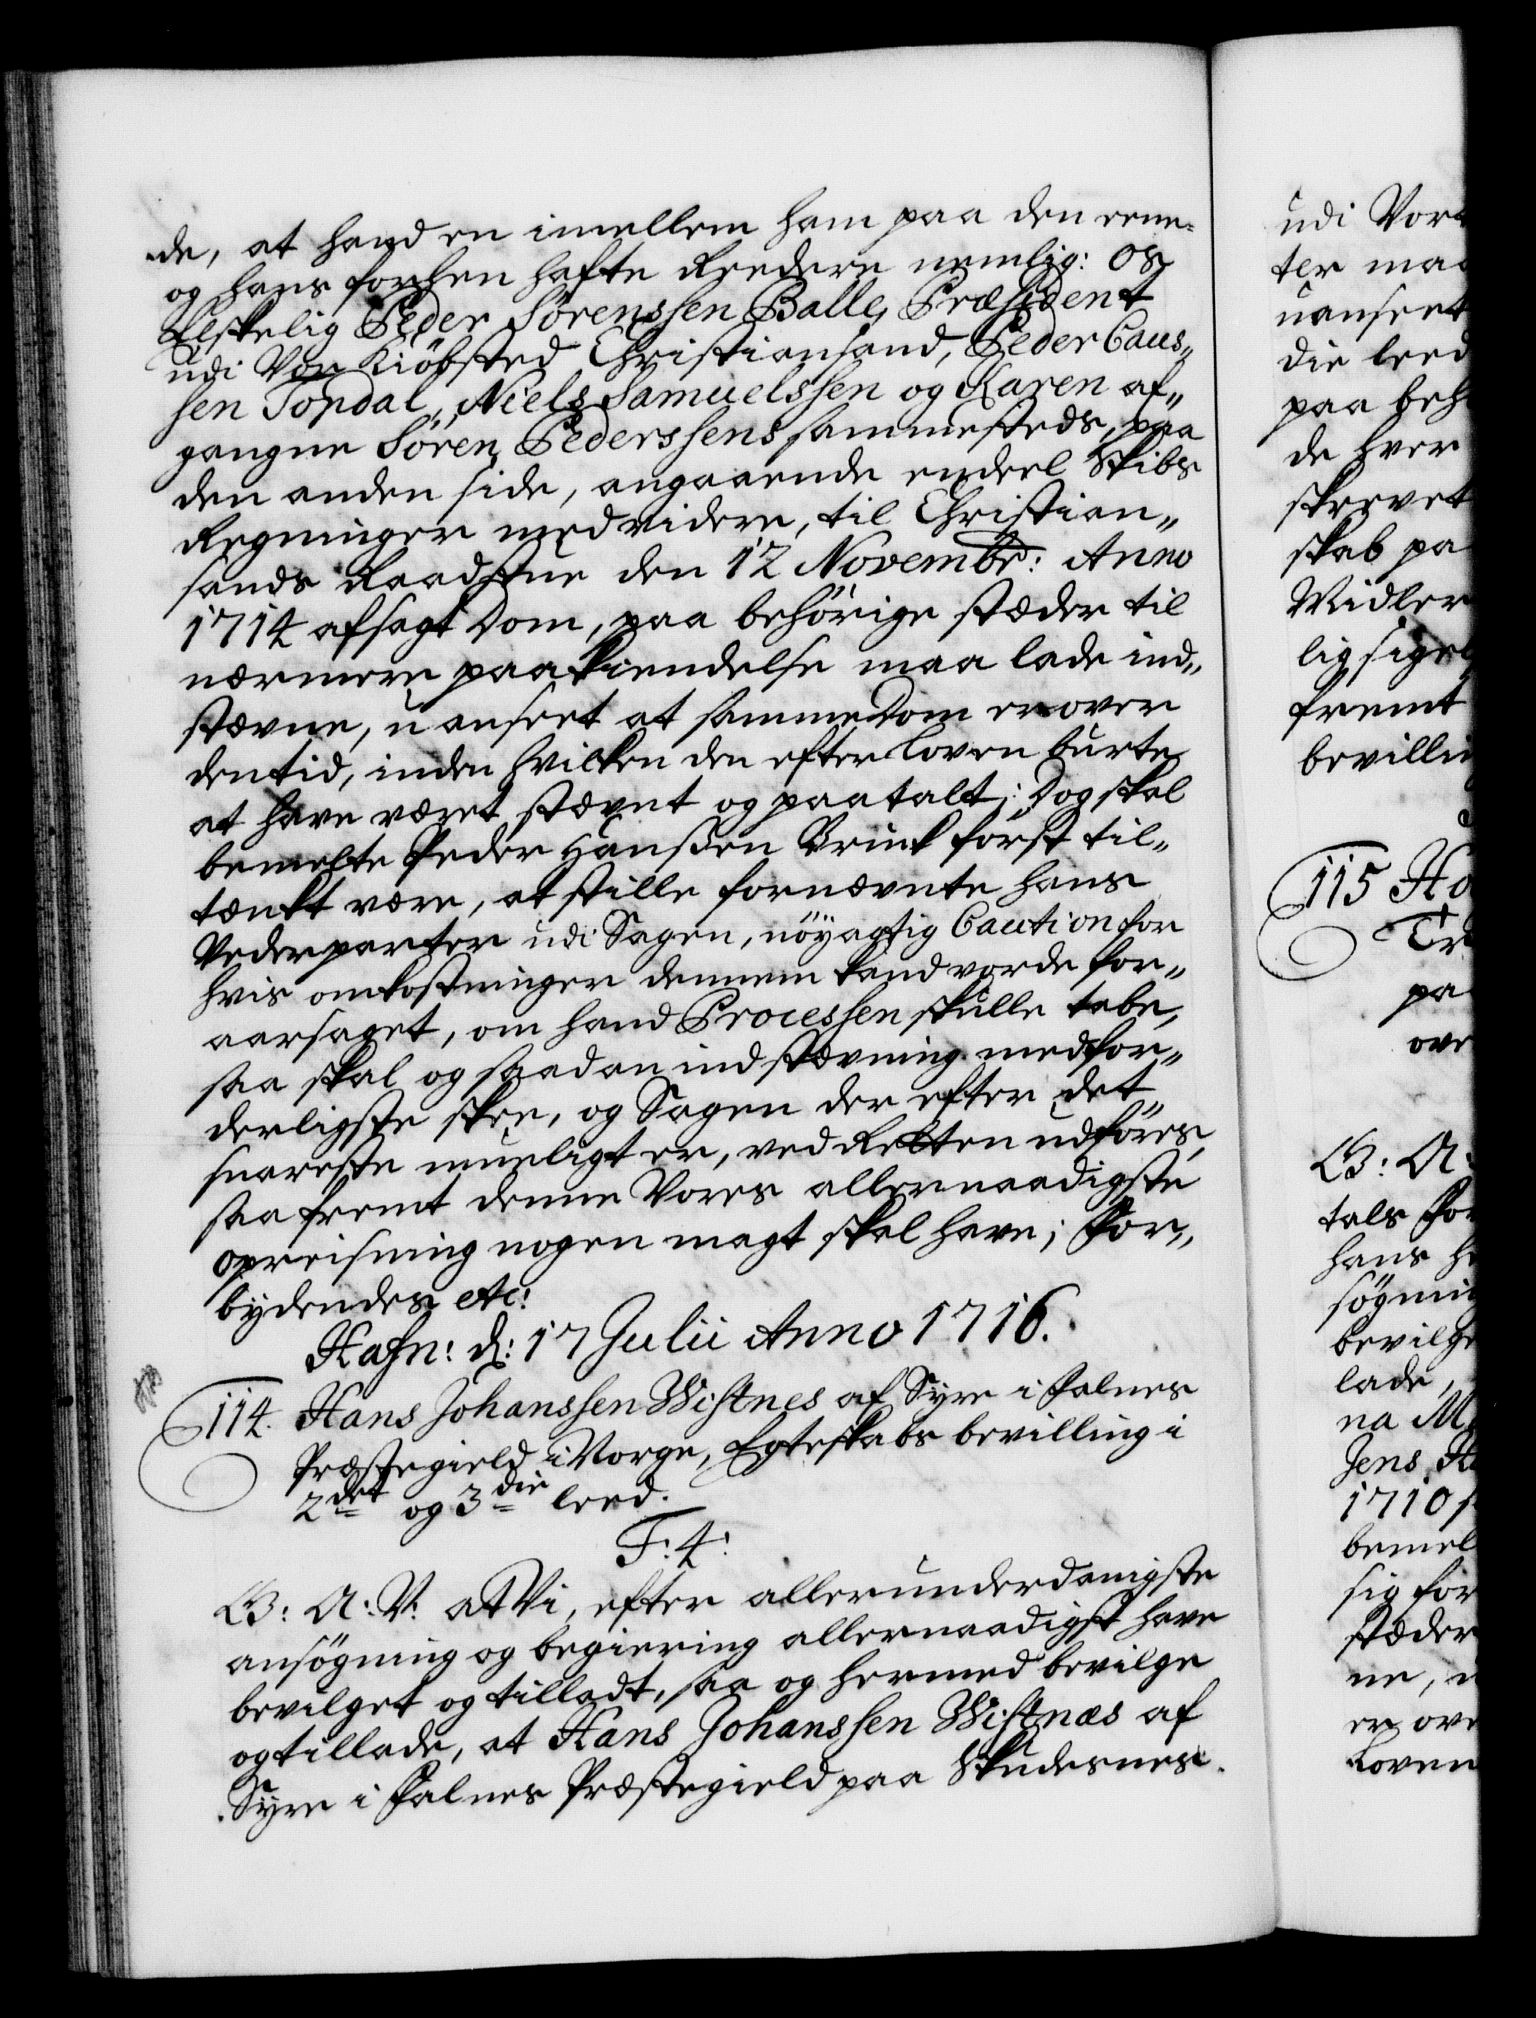 de, at hand en imellem ham paa den eene
og hans forhen hafte Reedere nemlig: Os
Elskelig Peder Sörenssen Balle, Præsident
udi Vor Kiöbsted Christiansand, Peder Caus„
sen Topdal, Niels Samuelssen og Karen af„
gangne Sören Pederssens sammesteds, paa
den anden side, angaaende endeel Skibs
Regninger med videre, til Christian„
sands Raadstue den 12 Novembr: Anno
1714 afsagt Dom, paa behörige stæder til
nærmere paakiendelse maa lade ind„
stævne, uanseet at samme Dom er over
den tid, inden hvilken den efter Loven burte
at have været stævnt og paatalt; Dog skal
bemelte Peder Hanssen Brink först til„
tænkt være, at stille fornævnte hans
Vederparter udi Sagen, nöyagtig Caution for
hvis omkostninger dennem kand vorde for„
aarsaget, om hand Processen skulle tabe,
saa skal og saadan indstævning med for„
derligste skee, og Sagen der efter det
snareste mueligt er, ved Retten udföres,
saa fremt denne Vores allernaadigste
opreisning nogen magt skal have; For„
bydendes etc:
Hafn: d: 17 Julii Anno 1716.
114. Hans Johanssen Wistnes af Syre i Falnes
Præstegield i Norge, Egteskabs bevilling i
2det og 3die leed.
F: 4:
G: A: V: at Vi, efter allerunderdanigste
ansögning og begiering allernaadigst have
bevilget og tilladt, saa og hermed bevilge
og tillade, at Hans Johanssen Wistnæs af
Syre i Falnes Præstegield paa Skudesnes
udi Vor
ter maa
uanseet
die leed
paa beh
de hver
skrevet
skab pa
Midler
lig sigel
fremt
bevillin
115 Ha
Tr
pa
ove
G: A:
tals For
hans h
sögnin
bevilge
lade,
na M
Jens H
1710
bemel
sig for
stæder
ne, u
er ove
Loven